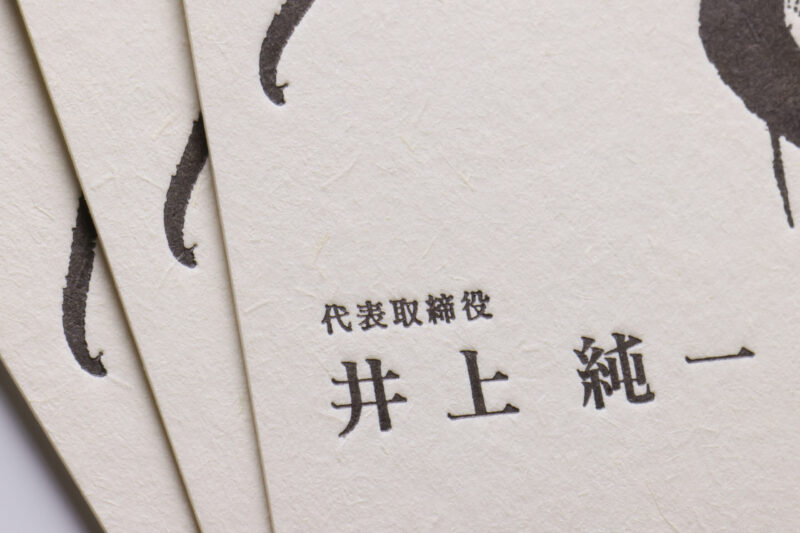 代表取締役
井上 純一